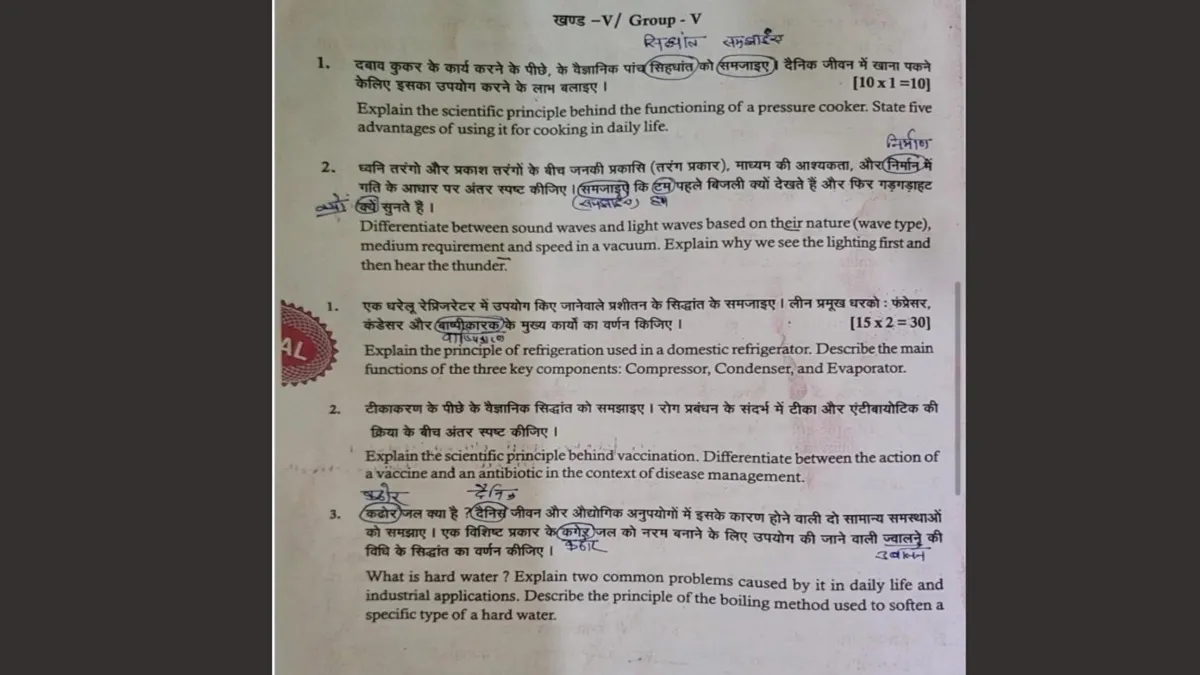 खण्ड –V/ Group - V
सिध्यांत समझाईस
1. दबाव कुकर के कार्य करने के पीछे, के वैज्ञानिक पांच सिहधांत को समजाइए। दैनिक जीवन में खाना पकने
केलिए इसका उपयोग करने के लाभ बलाइए । [10 x 1 =10]
Explain the scientific principle behind the functioning of a pressure cooker. State five
advantages of using it for cooking in daily life.
निर्माण
2. ध्वनि तरंगो और प्रकाश तरंगों के बीच जनकी प्रकासि (तरंग प्रकार), माध्यम की आश्यकता, और निर्मान में
गति के आधार पर अंतर स्पष्ट कीजिए । समजाइऐ कि टम पहले बिजली क्यों देखते हैं और फिर गड़गड़ाहट
क्यों क्यें सुनते है ।
समझाईए हम
Differentiate between sound waves and light waves based on their nature (wave type),
medium requirement and speed in a vacuum. Explain why we see the lighting first and
then hear the thunder.
1. एक घरेलू रेप्रिजरेटर में उपयोग किए जानेवाले प्रशीतन के सिद्धांत के समजाइए । लीन प्रमूख धरको : फंप्रेसर,
कंडेसर और बाष्पीकारक के मुख्य कार्यो का वर्णन किजिए । [15 x 2 = 30]
Explain the principle of refrigeration used in a domestic refrigerator. Describe the main
functions of the three key components: Compressor, Condenser, and Evaporator.
AL
2. टीकाकरण के पीछे के वैज्ञानिक सिद्धांत को समझाइए । रोग प्रबंधन के संदर्भ में टीका और एंटीबायोटिक की
क्रिया के बीच अंतर स्पष्ट कीजिए ।
Explain the scientific principle behind vaccination. Differentiate between the action of
a vaccine and an antibiotic in the context of disease management.
कठोर दैनिक
3. कढोर जल क्या है ? दैनिस जीवन और औद्योगिक अनुपयोगों में इसके कारण होने वाली दो सामान्य समस्थाओं
को समझाए । एक विशिष्ट प्रकार के कगेर जल को नरम बनाने के लिए उपयोग की जाने वाली ज्वालने की
विधि के सिद्धांत का वर्णन कीजिए । कठोर उबालन
What is hard water ? Explain two common problems caused by it in daily life and
industrial applications. Describe the principle of the boiling method used to soften a
specific type of a hard water.